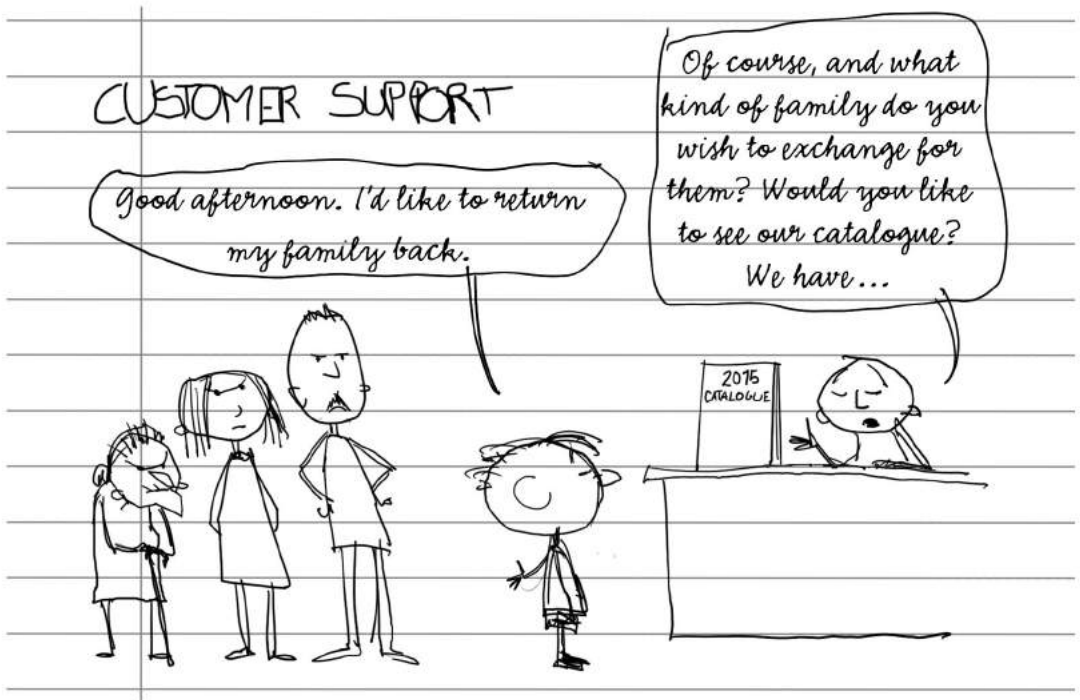 CUSTOMER SUPPORT
Good afternoon. I'd like to return
my family back.
Of course, and what
kind of family do you
wish to exchange for
them? Would you like
to see our catalogue?
We have...
2015
CATALOGUE